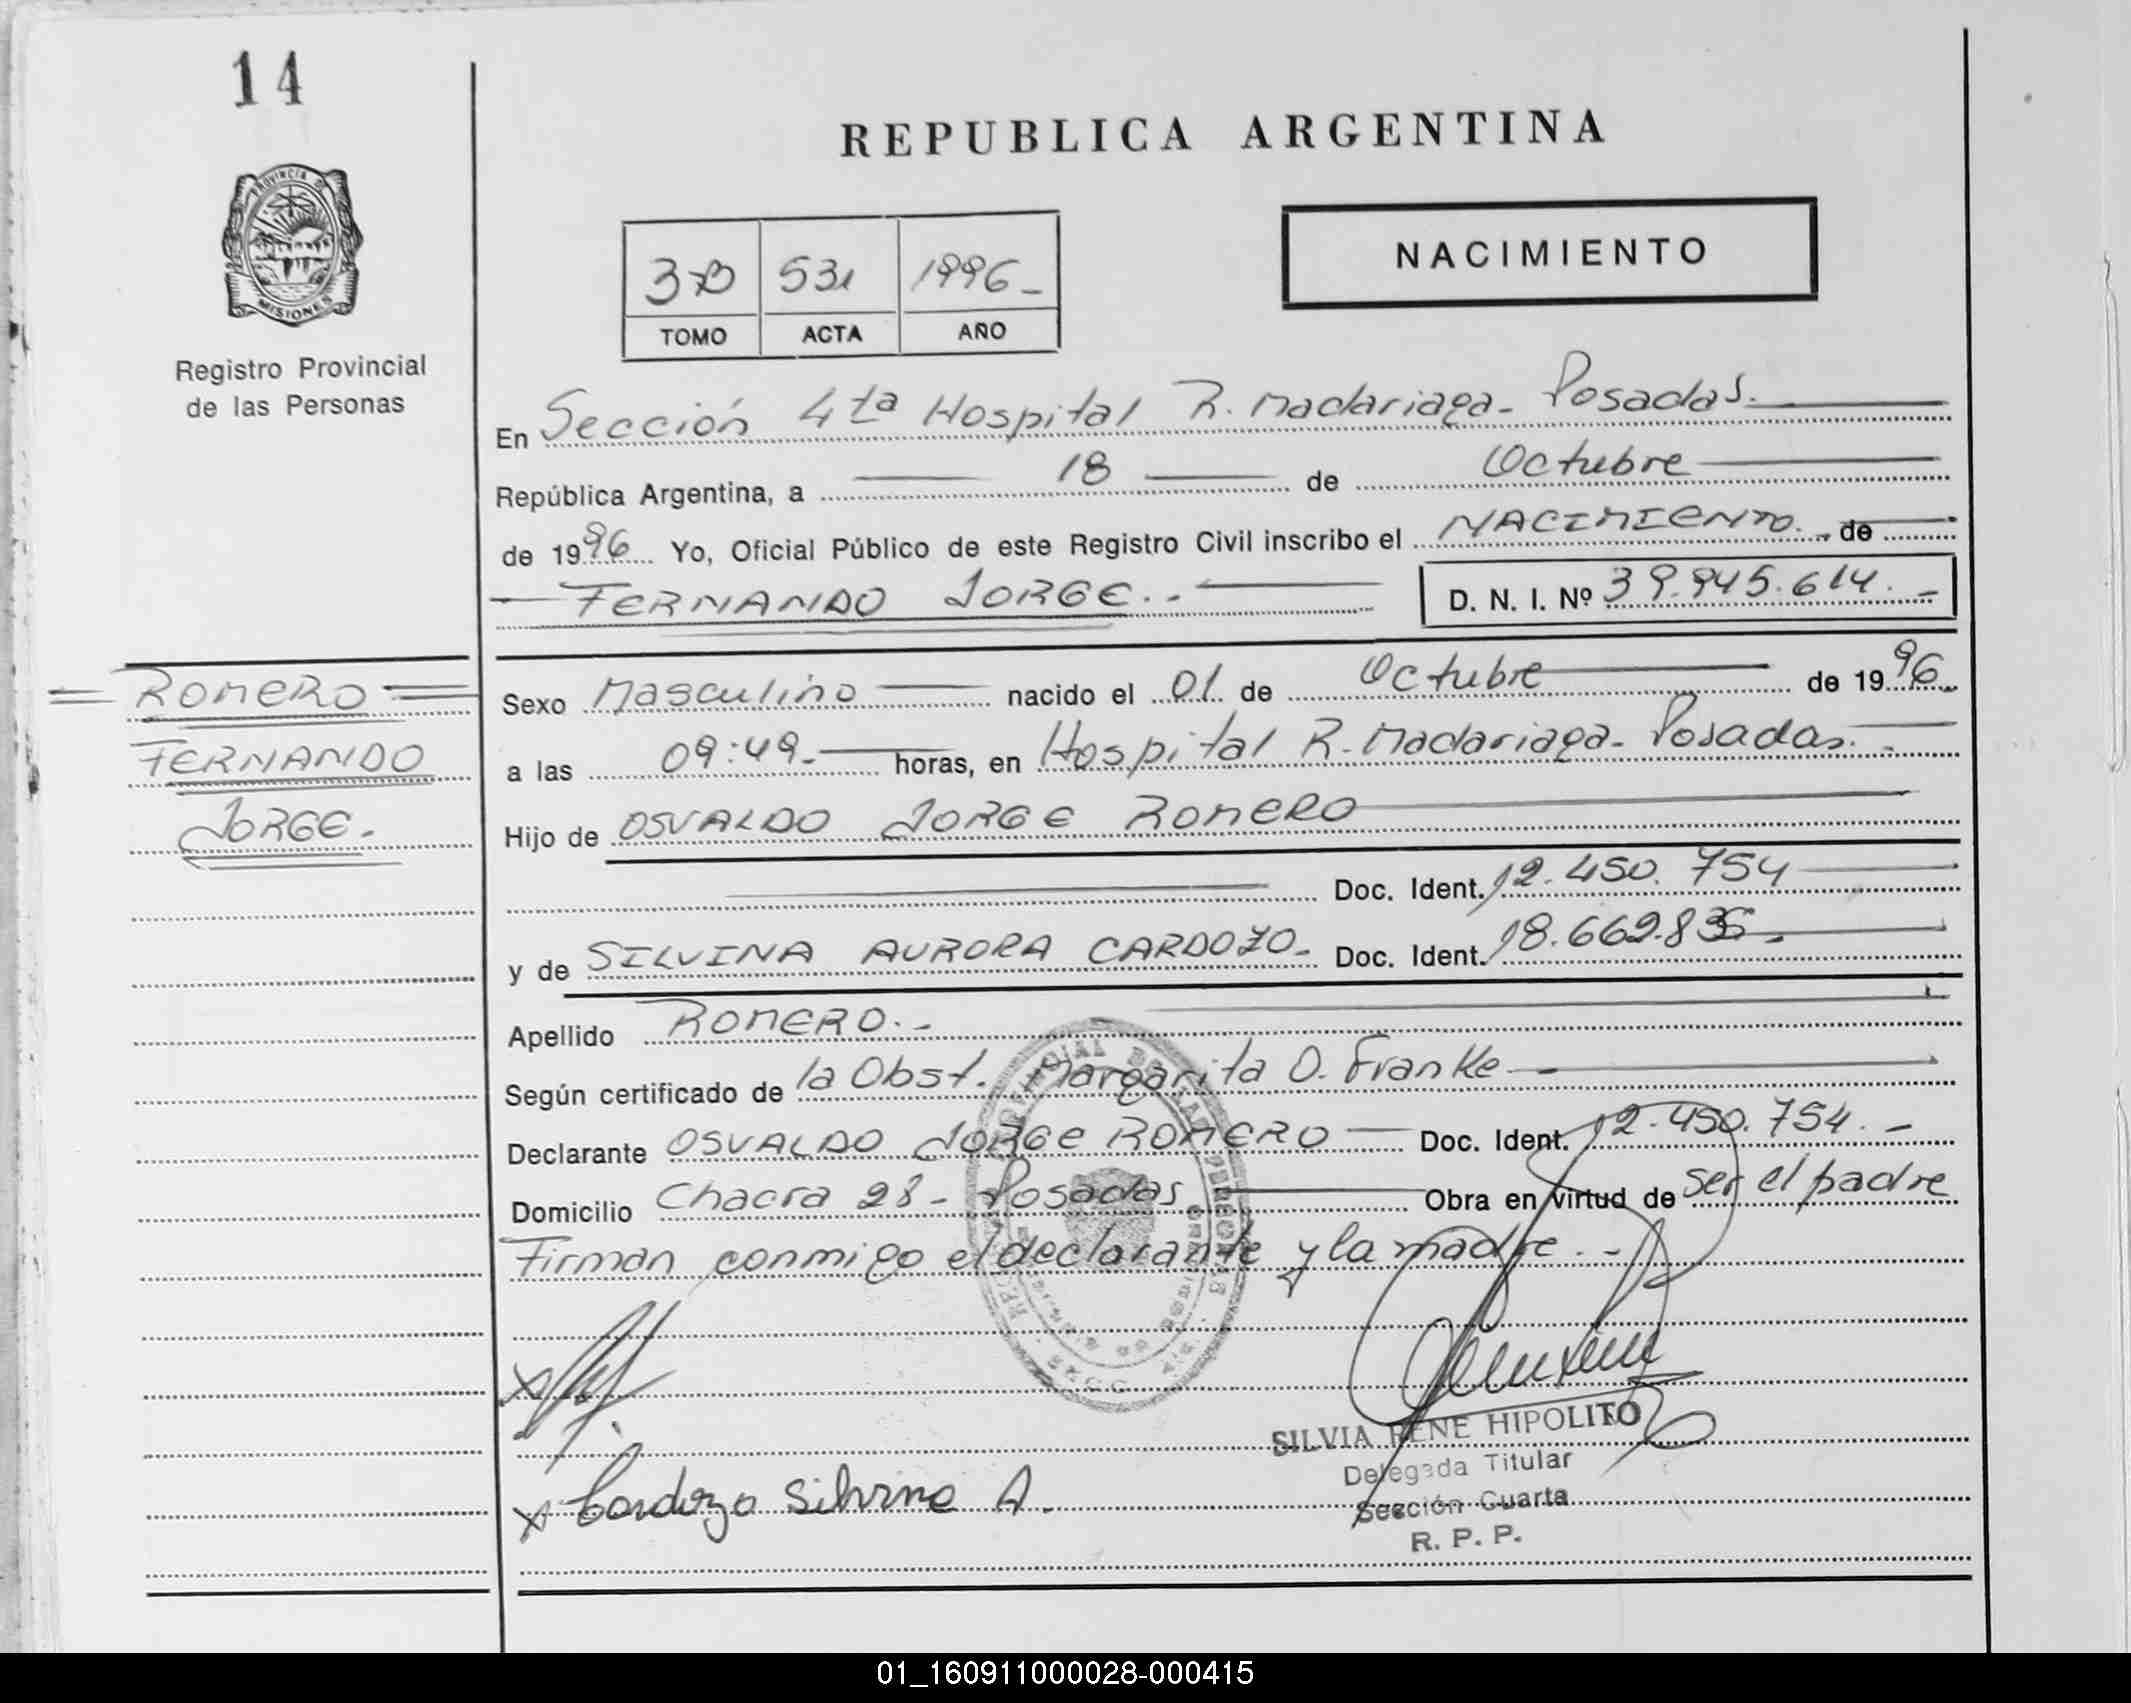 14
PROVINCIA DE
MISIONES
Registro Provincial
de las Personas
REPUBLICA ARGENTINA
NACIMIENTO
3-B 531 1996_
TOMO ACTA AÑO
En Sección 4ta Hospital R. Madariaga- Posadas.
República Argentina, a 18 de Octubre
de 1996 Yo, Oficial Público de este Registro Civil inscribo el NACIMIENTO. de
FERNANDO JORGE.- D. N. I. Nº 39.945.614.-
ROMERO
FERNANDO
JORGE.
Sexo Masculino nacido el 01 de Octubre de 1996
a las 09:49 horas, en Hospital R. Madariaga- Posadas.
Hijo de OSVALDO JORGE ROMERO
Doc. Ident. 12.450.754
y de SILVINA AURORA CARDOZO- Doc. Ident. 18.669.836.
Apellido ROMERO.-
Según certificado de la Obst. Margarita O. Franke
Declarante OSVALDO JORGE ROMERO Doc. Ident. 12.450.754.-
Domicilio Chacra 28- Posadas Obra en virtud de ser el padre
Firman conmigo el declarante y la madre.-
x
x Cardozo Silvina A.
SILVIA RENE HIPOLITO
Delegada Titular
Sección Cuarta
R. P. P.
01_160911000028-000415